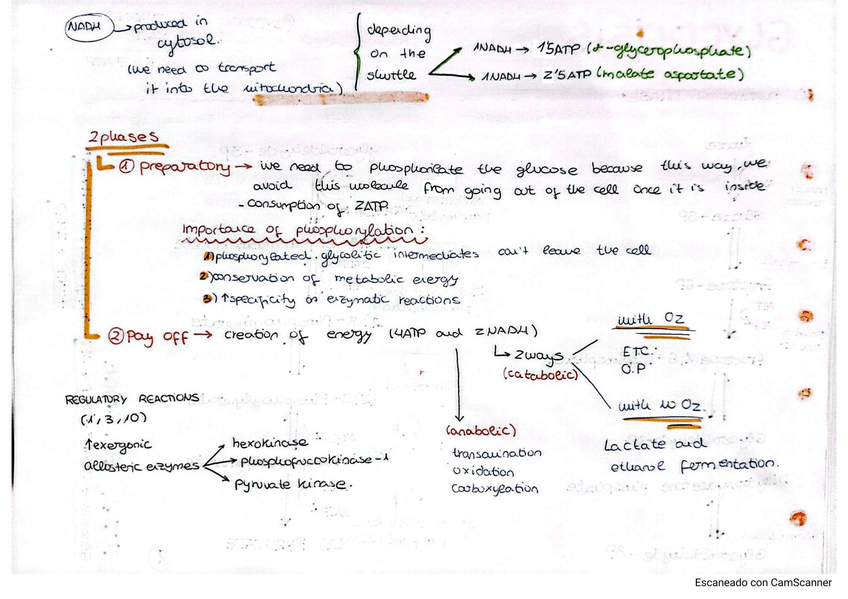 NADH → produced in
cytosol.
(we need to transport
it into the mitochondria)
depending
on the
shuttle
1NADH → 1'5ATP (α-glycerophosphate)
1NADH → 2'5ATP (malate aspartate)
2 phases
① preparatory → we need to phosphorilate the glucose because this way we
avoid this molecule from going out of the cell once it is inside
- consumption of 2ATP
Importance of phosphorylation:
1) phosphorylated glycolitic intermediates can't leave the cell
2) conservation of metabolic energy
3) ↑specificity or enzymatic reactions
② Pay off → creation of energy (4ATP and 2NADH)
↳ 2ways
(catabolic)
with O2
ETC.
O.P
with no O2.
Lactate and
ethanol fermentation.
(anabolic)
transamination
oxidation
carboxylation
REGULATORY REACTIONS
(1, 3, 10)
↑exergonic
allosteric enzymes
hexokinase
phosphofructokinase-1
pyruvate kinase.
Escaneado con CamScanner